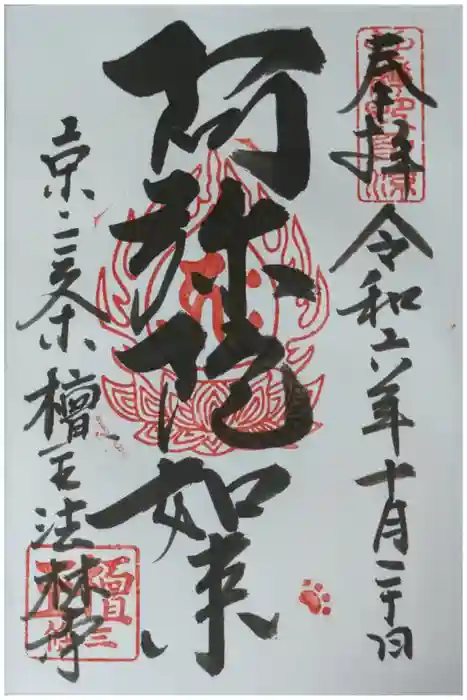 奉拝
令和六年十月二十日
阿弥陀如来
京・三条 檀王法林寺